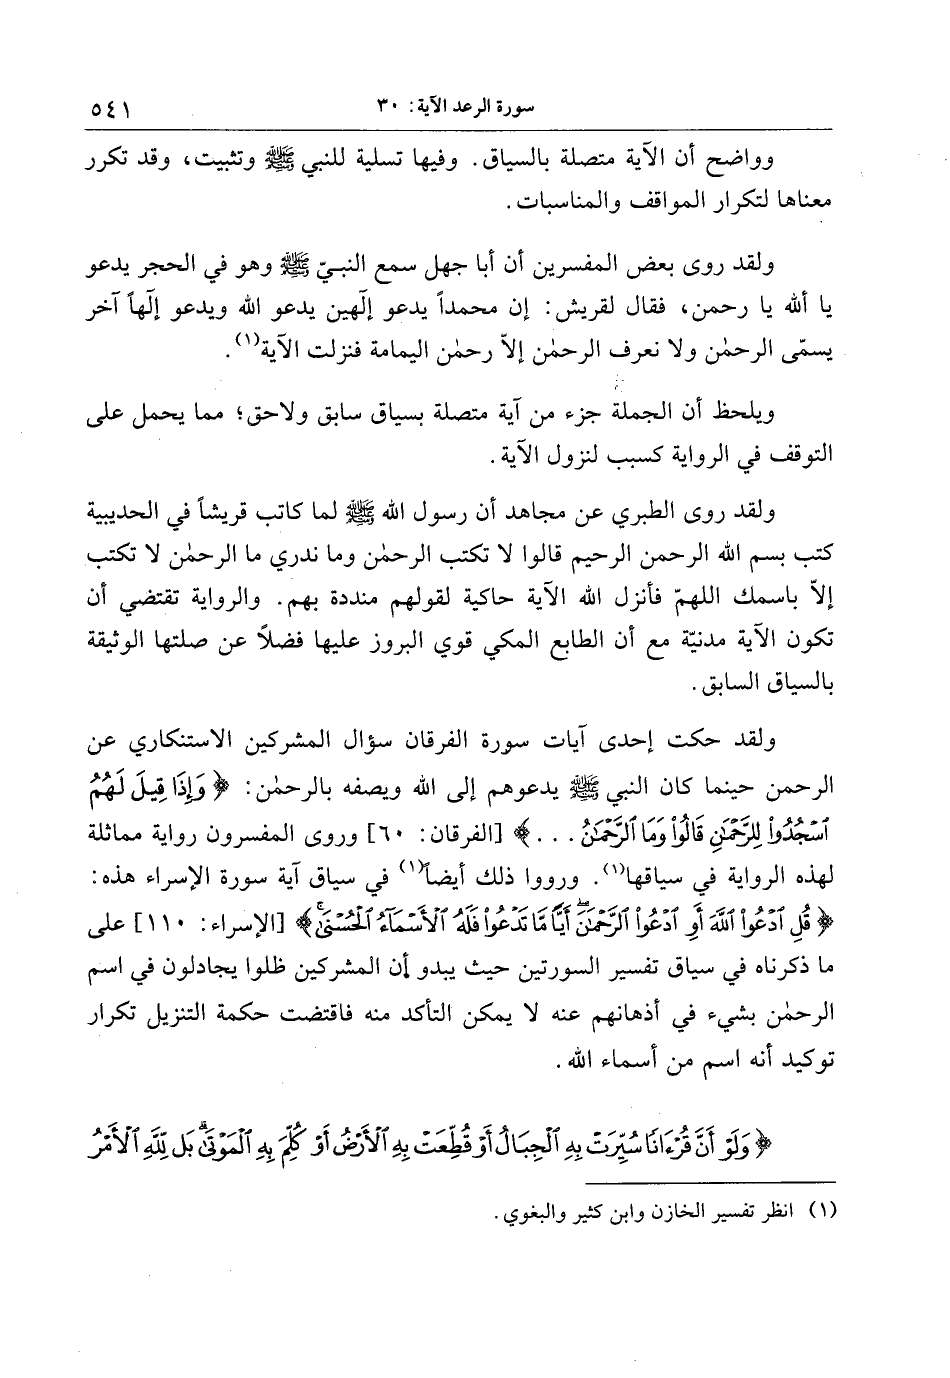 سورة الرعد الآية: ٣٠ ٥٤١
وواضح أن الآية متصلة بالسياق. وفيها تسلية للنبي ﷺ وتثبيت، وقد تكرر
معناها لتكرار المواقف والمناسبات.
ولقد روى بعض المفسرين أن أبا جهل سمع النبيّ ﷺ وهو في الحجر يدعو
يا ألله يا رحمن، فقال لقريش: إن محمداً يدعو إلٰهين يدعو الله ويدعو إلٰهاً آخر
يسمّى الرحمٰن ولا نعرف الرحمٰن إلاّ رحمٰن اليمامة فنزلت الآية(١).
ويلحظ أن الجملة جزء من آية متصلة بسياق سابق ولاحق؛ مما يحمل على
التوقف في الرواية كسبب لنزول الآية.
ولقد روى الطبري عن مجاهد أن رسول الله ﷺ لما كاتب قريشاً في الحديبية
كتب بسم الله الرحمن الرحيم قالوا لا تكتب الرحمٰن وما ندري ما الرحمٰن لا تكتب
إلاّ باسمك اللهمّ فأنزل الله الآية حاكية لقولهم منددة بهم. والرواية تقتضي أن
تكون الآية مدنيّة مع أن الطابع المكي قوي البروز عليها فضلاً عن صلتها الوثيقة
بالسياق السابق.
ولقد حكت إحدى آيات سورة الفرقان سؤال المشركين الاستنكاري عن
الرحمن حينما كان النبي ﷺ يدعوهم إلى الله ويصفه بالرحمٰن: ﴿ وَإِذَا قِيلَ لَهُمُ
ٱسْجُدُواْ لِلرَّحْمَٰنِ قَالُواْ وَمَا ٱلرَّحْمَٰنُ . . . ﴾ [الفرقان: ٦٠] وروى المفسرون رواية مماثلة
لهذه الرواية في سياقها(١). ورووا ذلك أيضاً(١) في سياق آية سورة الإسراء هذه:
﴿ قُلِ ٱدْعُواْ ٱللَّهَ أَوِ ٱدْعُواْ ٱلرَّحْمَٰنَۖ أَيًّا مَّا تَدْعُواْ فَلَهُ ٱلْأَسْمَآءُ ٱلْحُسْنَىٰۚ ﴾ [الإسراء: ١١٠] على
ما ذكرناه في سياق تفسير السورتين حيث يبدو أن المشركين ظلوا يجادلون في اسم
الرحمٰن بشيء في أذهانهم عنه لا يمكن التأكد منه فاقتضت حكمة التنزيل تكرار
توكيد أنه اسم من أسماء الله.
﴿ وَلَوْ أَنَّ قُرْءَانًا سُيِّرَتْ بِهِ ٱلْجِبَالُ أَوْ قُطِّعَتْ بِهِ ٱلْأَرْضُ أَوْ كُلِّمَ بِهِ ٱلْمَوْتَىٰۗ بَل لِّلَّهِ ٱلْأَمْرُ
(١) انظر تفسير الخازن وابن كثير والبغوي.